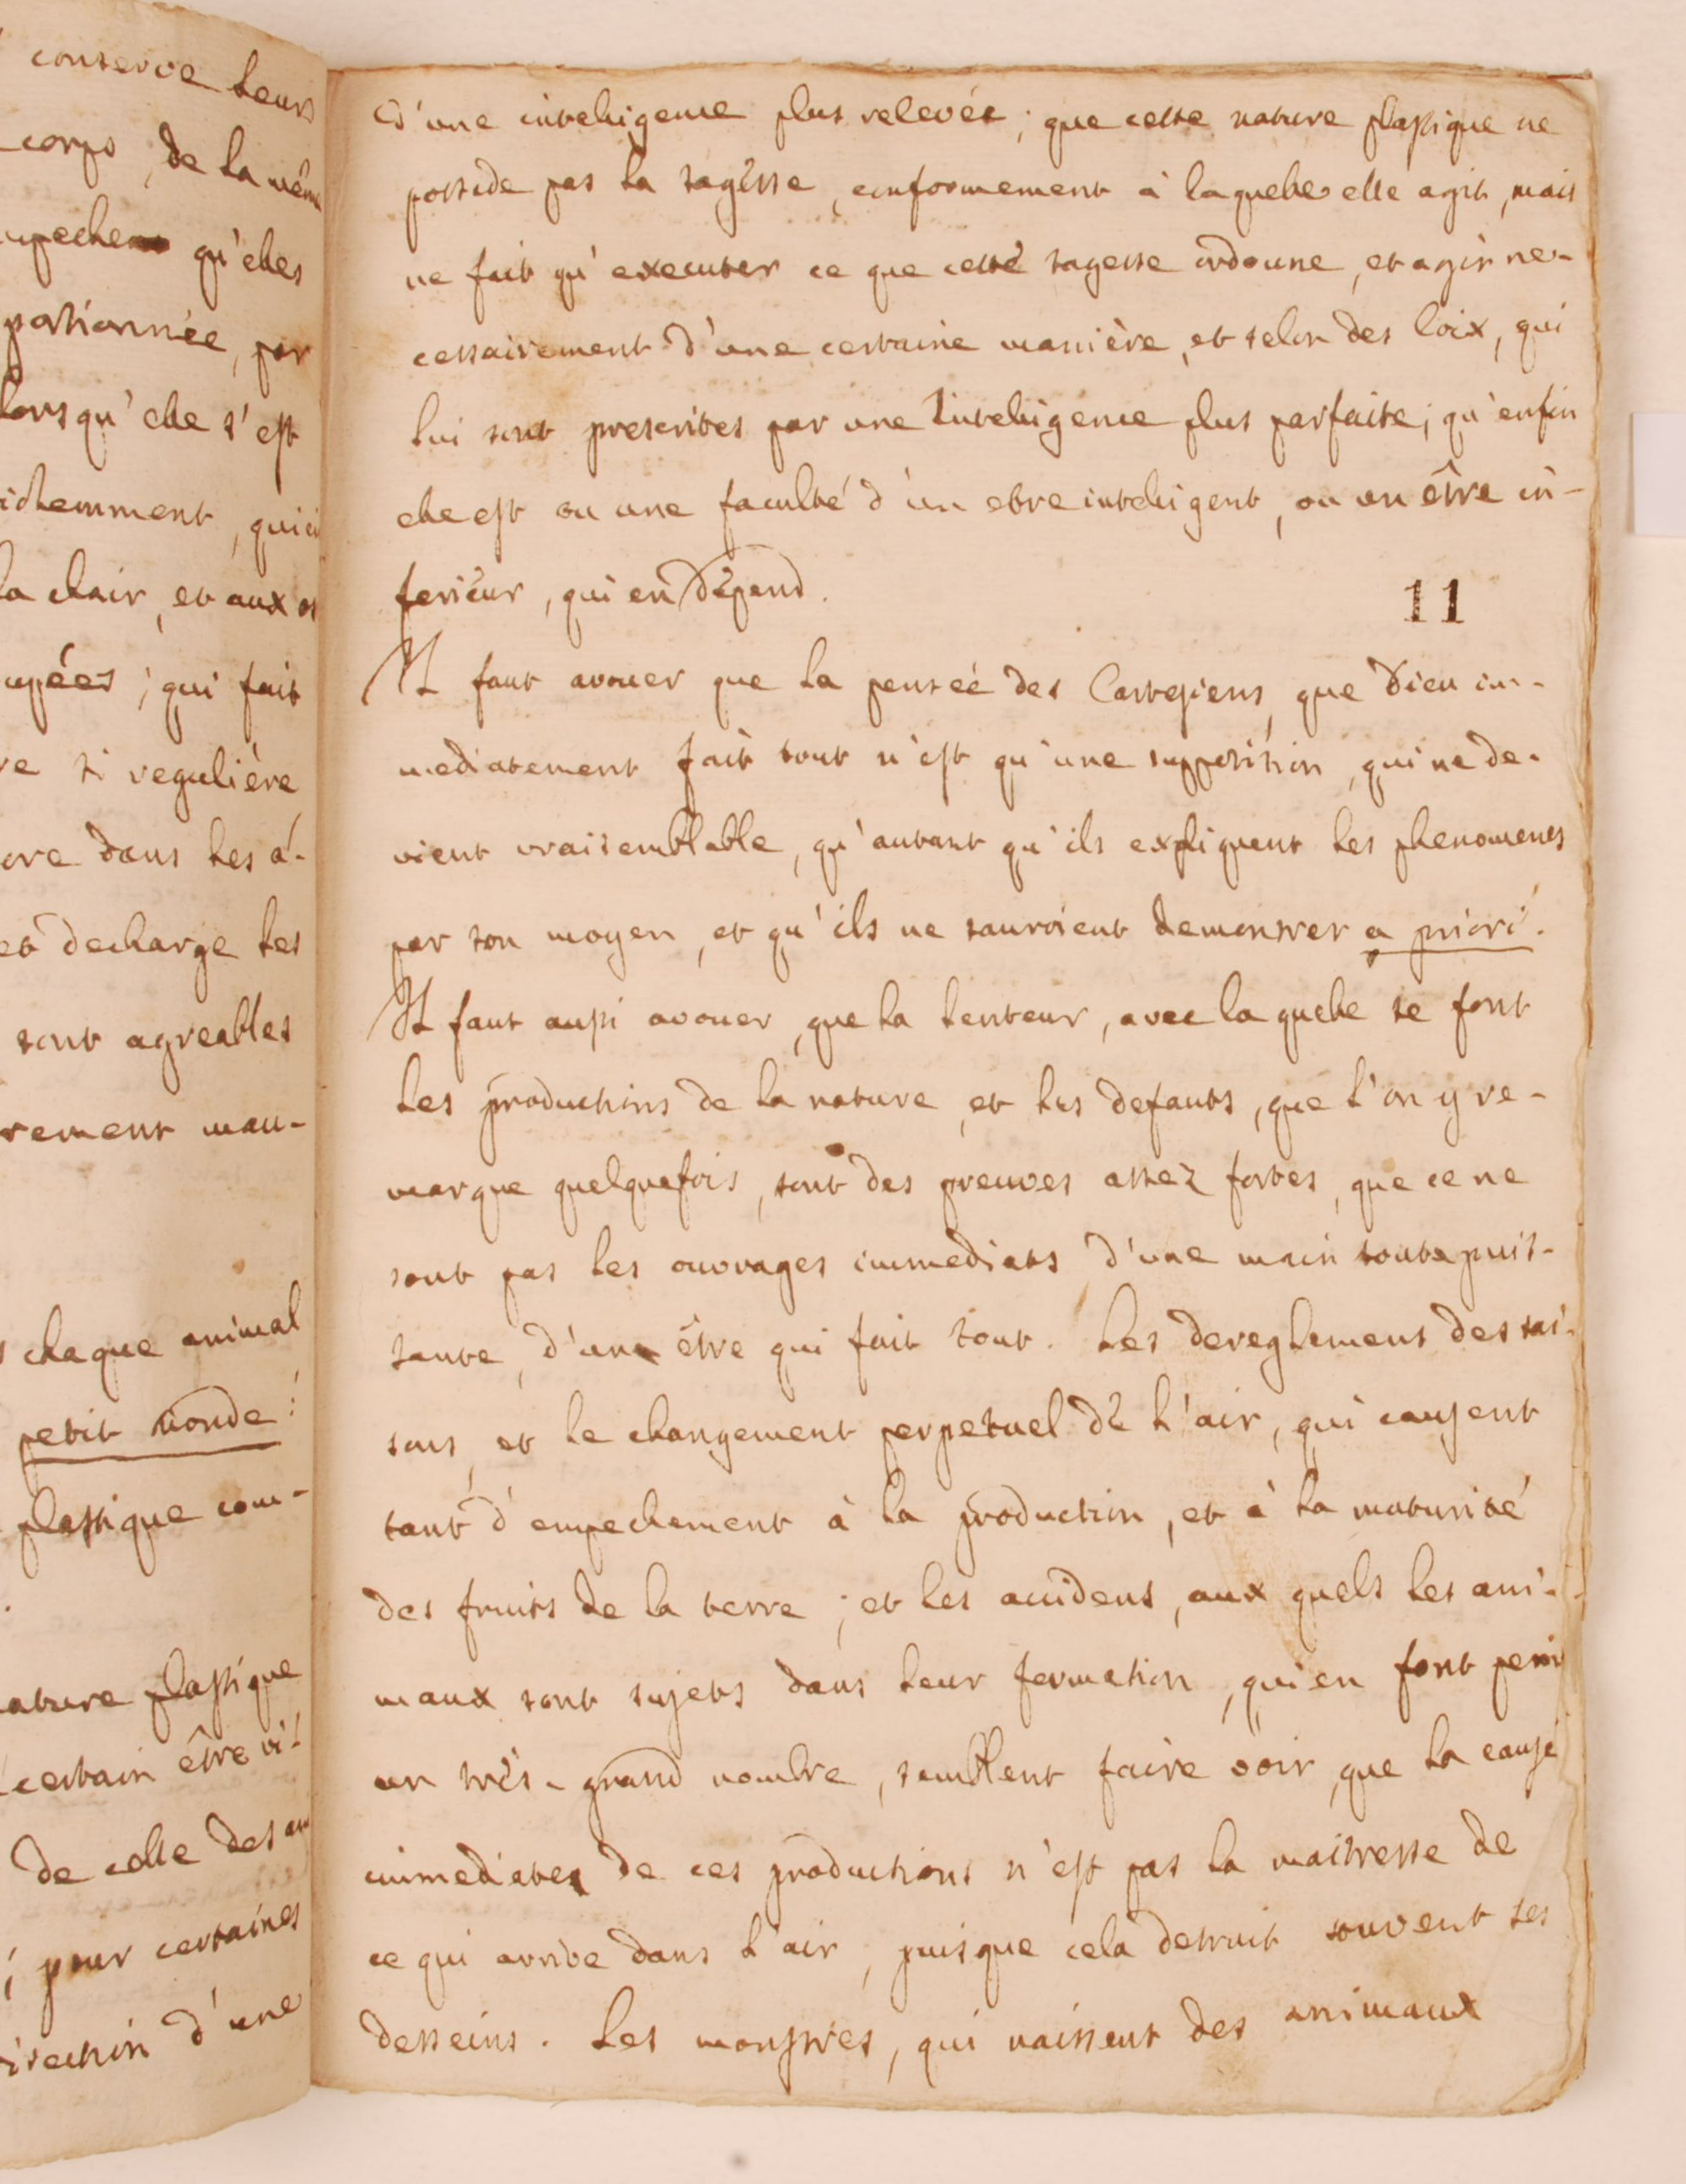 conserve leurs
corps, de la même
qu'elles
portionnée, par
lorsqu'elle s'est
, qui
la chair, et aux os
; qui fait
si regulière
dans les a-
et decharge les
sont agreables
rement mau-
chaque animal
petit monde:
plastique com-
nature plastique
certain être vi-
de celle des
; pour certaines
direction d'une
d'une intelligence plus relevée; que cette nature plastique ne
possede pas la sagesse, conformement à laquelle elle agit, mais
ne fait qu'executer ce que cette sagesse ordonne, et agir ne-
cessairement d'une certaine manière, et selon des loix, qui
lui sont prescrites par une Intelligence plus parfaite; qu'enfin
elle est ou une faculté d'un etre intelligent, ou un être in-
ferieur, qui en dépend.
11
Il faut avouer que la pensée des Cartesiens, que Dieu im-
mediatement fait tout n'est qu'une supposition, qui ne de-
vient vraisemblable, qu'autant qu'ils expliquent les phenomenes
par son moyen, et qu'ils ne sauroient demonstrer a priori.
Il faut aussi avouer, que la lenteur, avec laquelle se font
les productions de la nature, et les defauts, que l'on y re-
marque quelquefois, sont des preuves assez fortes, que ce ne
sont pas les ouvrages immediats d'une main toutepuis-
sante, d'un être qui fait tout. Les dereglemens des sai-
sons, et le changement perpetuel de l'air, qui causent
tant d'empechement à la production, et à la maturité
des fruits de la terre; et les accidens, aux quels les ani-
maux sont sujets dans leur formation, qui en font perir
un très-grand nombre, semblent faire voir, que la cause
immediate de ces productions n'est pas la maitresse de
ce qui arrive dans l'air, puisque cela detruit souvent ses
desseins. Les monstres, qui naissent des animaux